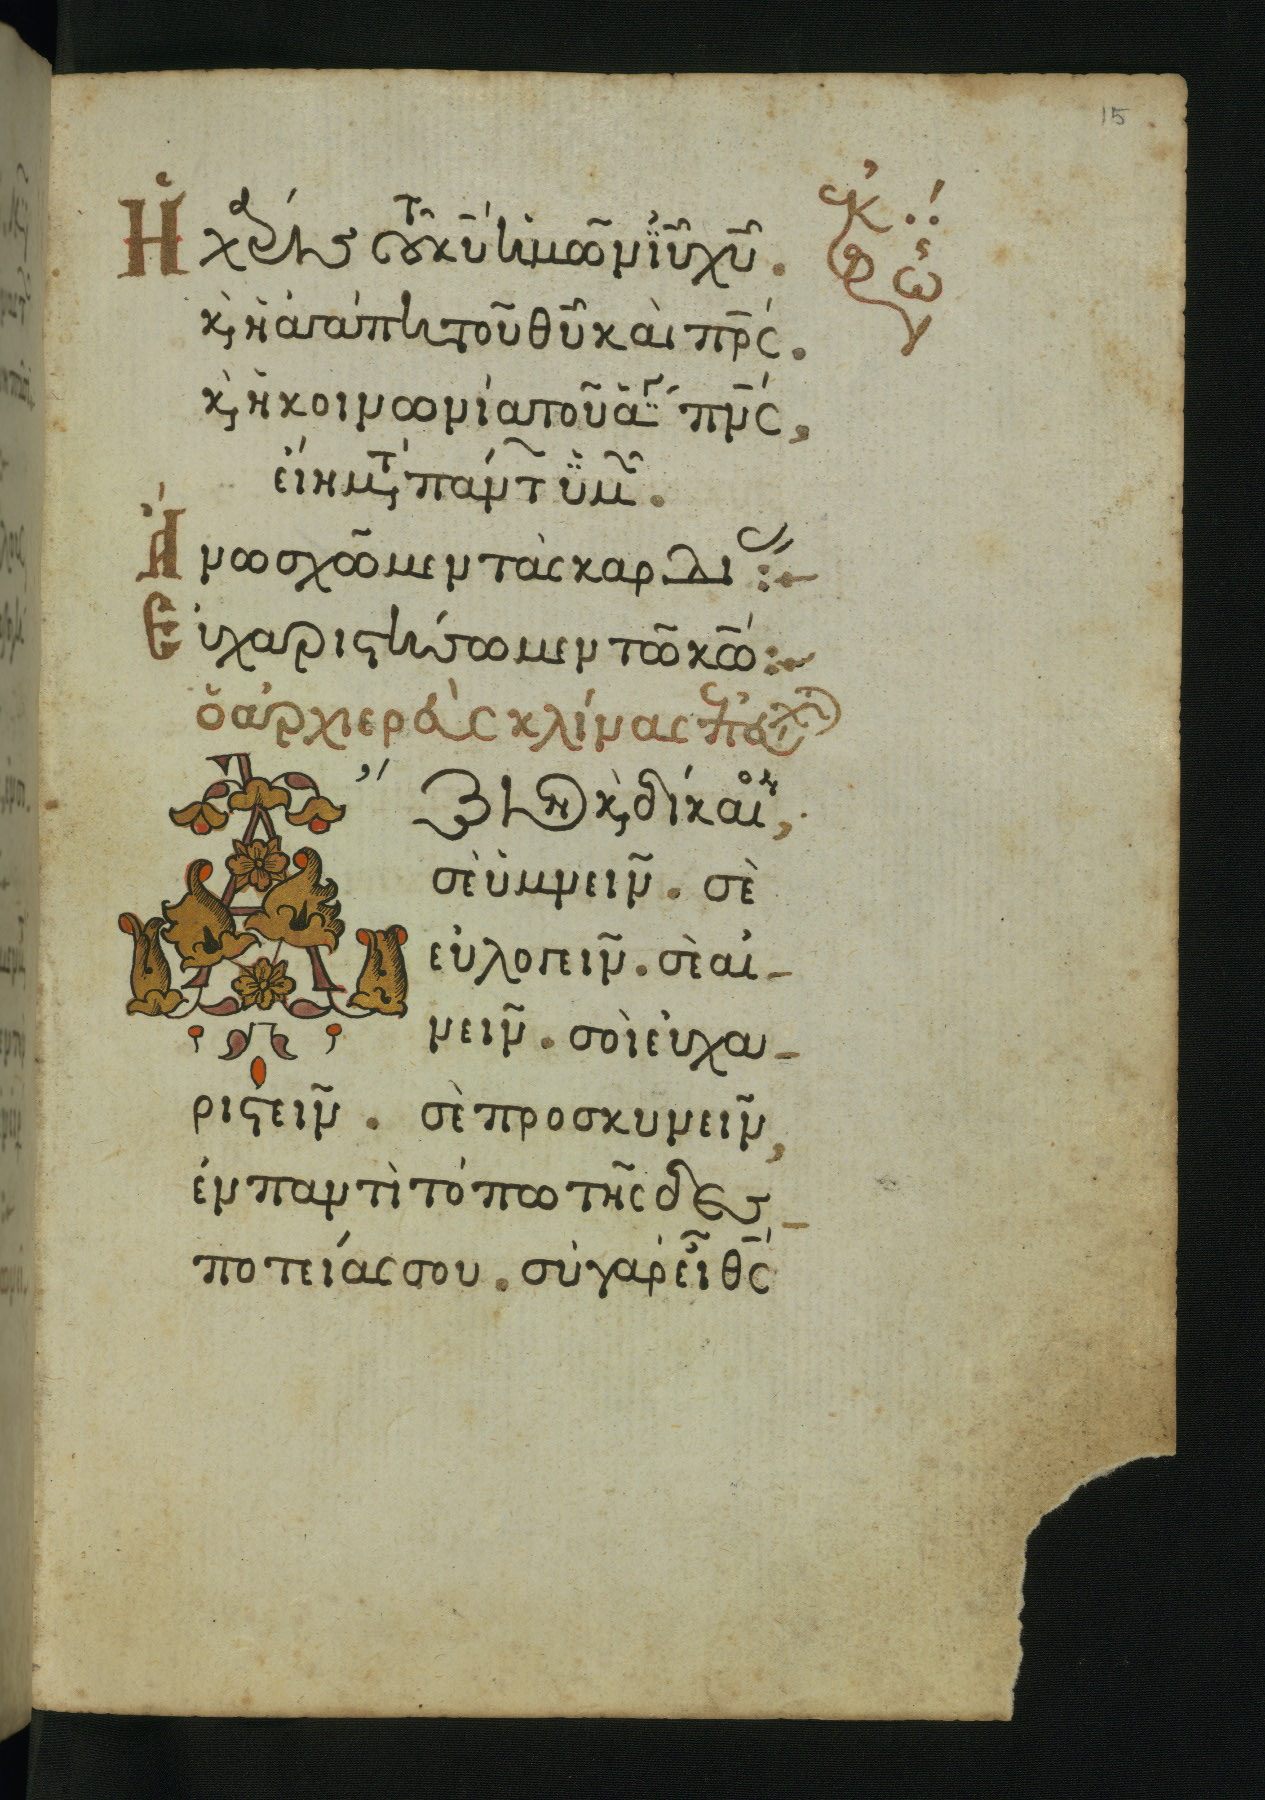 15
Ἡ χάρις τοῦ κῦ ἡμῶν ἰῦ χῦ.
κ, ἡ ἀγάπη τοῦ θῦ καὶ πρς.
κ, ἡ κοινωνία τοῦ ἁγ πνς,
εἴη μτ πάντ ὑμ.
Ἄνω σχῶμεν τὰς καρδι
Εὐχαριστήσωμεν τῶ κω
ὁ ἀρχιερὰς κλίνας
Ἄξιον κ, δίκαιον,
σὲ ὑμνεῖν. σὲ
εὐλογεῖν. σὲ αἰ-
νεῖν. σοὶ εὐχα-
ριστεῖν. σὲ προσκυνεῖν,
ἐν παντὶ τόπω τῆς δεσ-
ποτείας σου. σὺ γὰρ εἶ θς